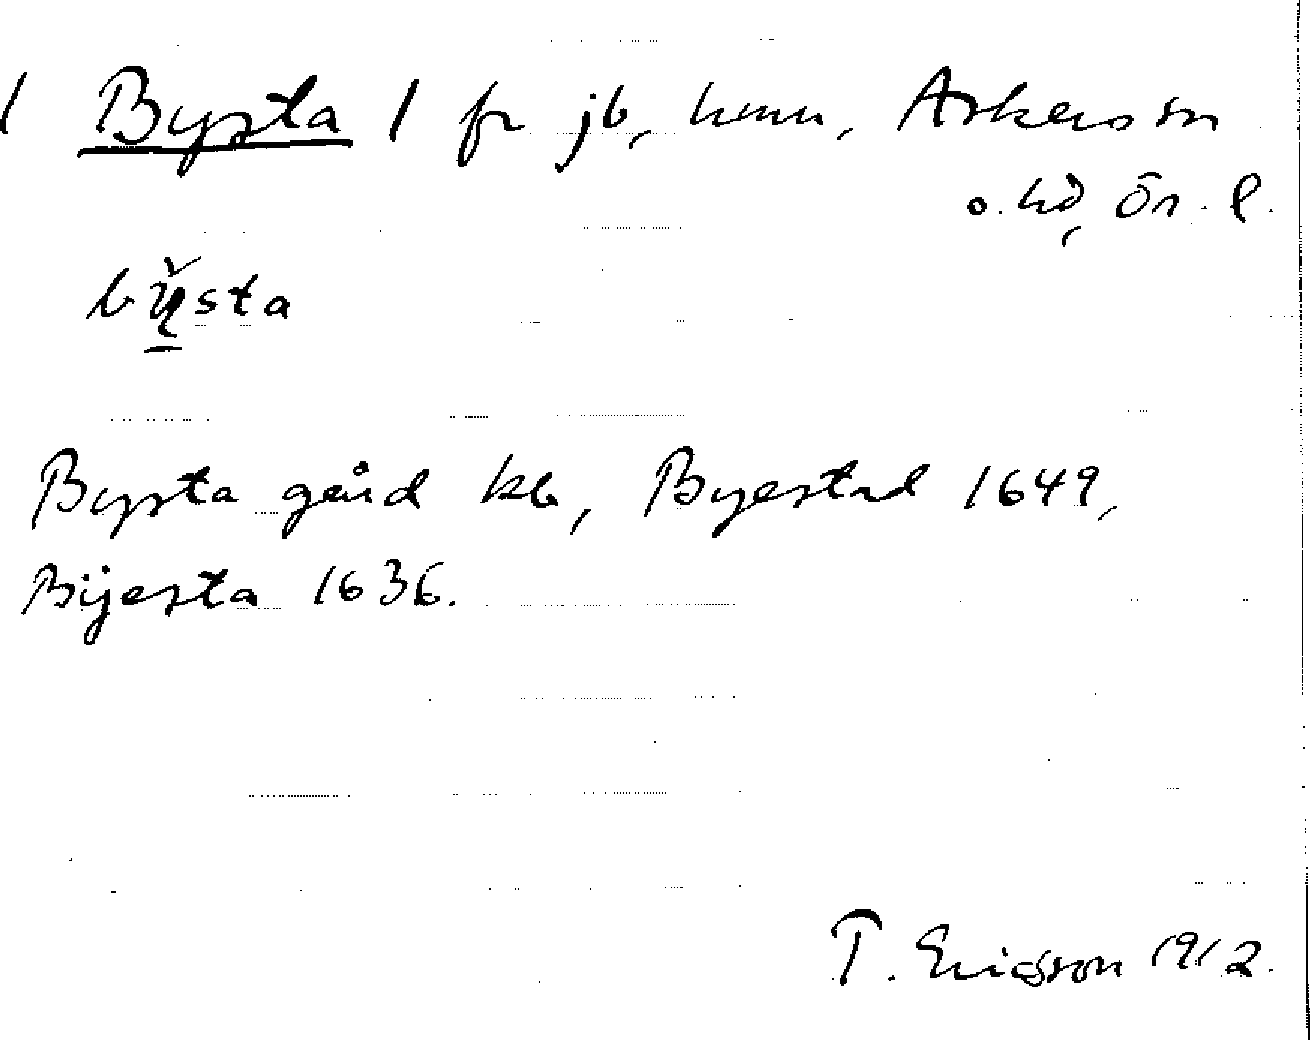 1 Bysta 1 fr jb, hmn, Askers sn
o. hd, Ör. l.
by̌sta
Bysta gård kb, Byestad 1649,
Bijesta 1636.
T. Ericsson 1912.